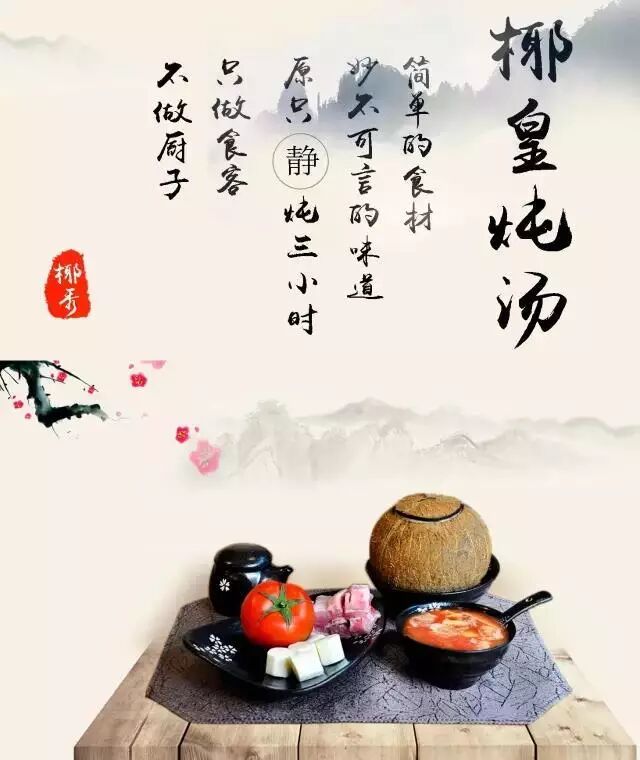 椰皇炖汤
简单的食材
妙不可言的味道
原只静炖三小时
只做食客
不做厨子
椰秀